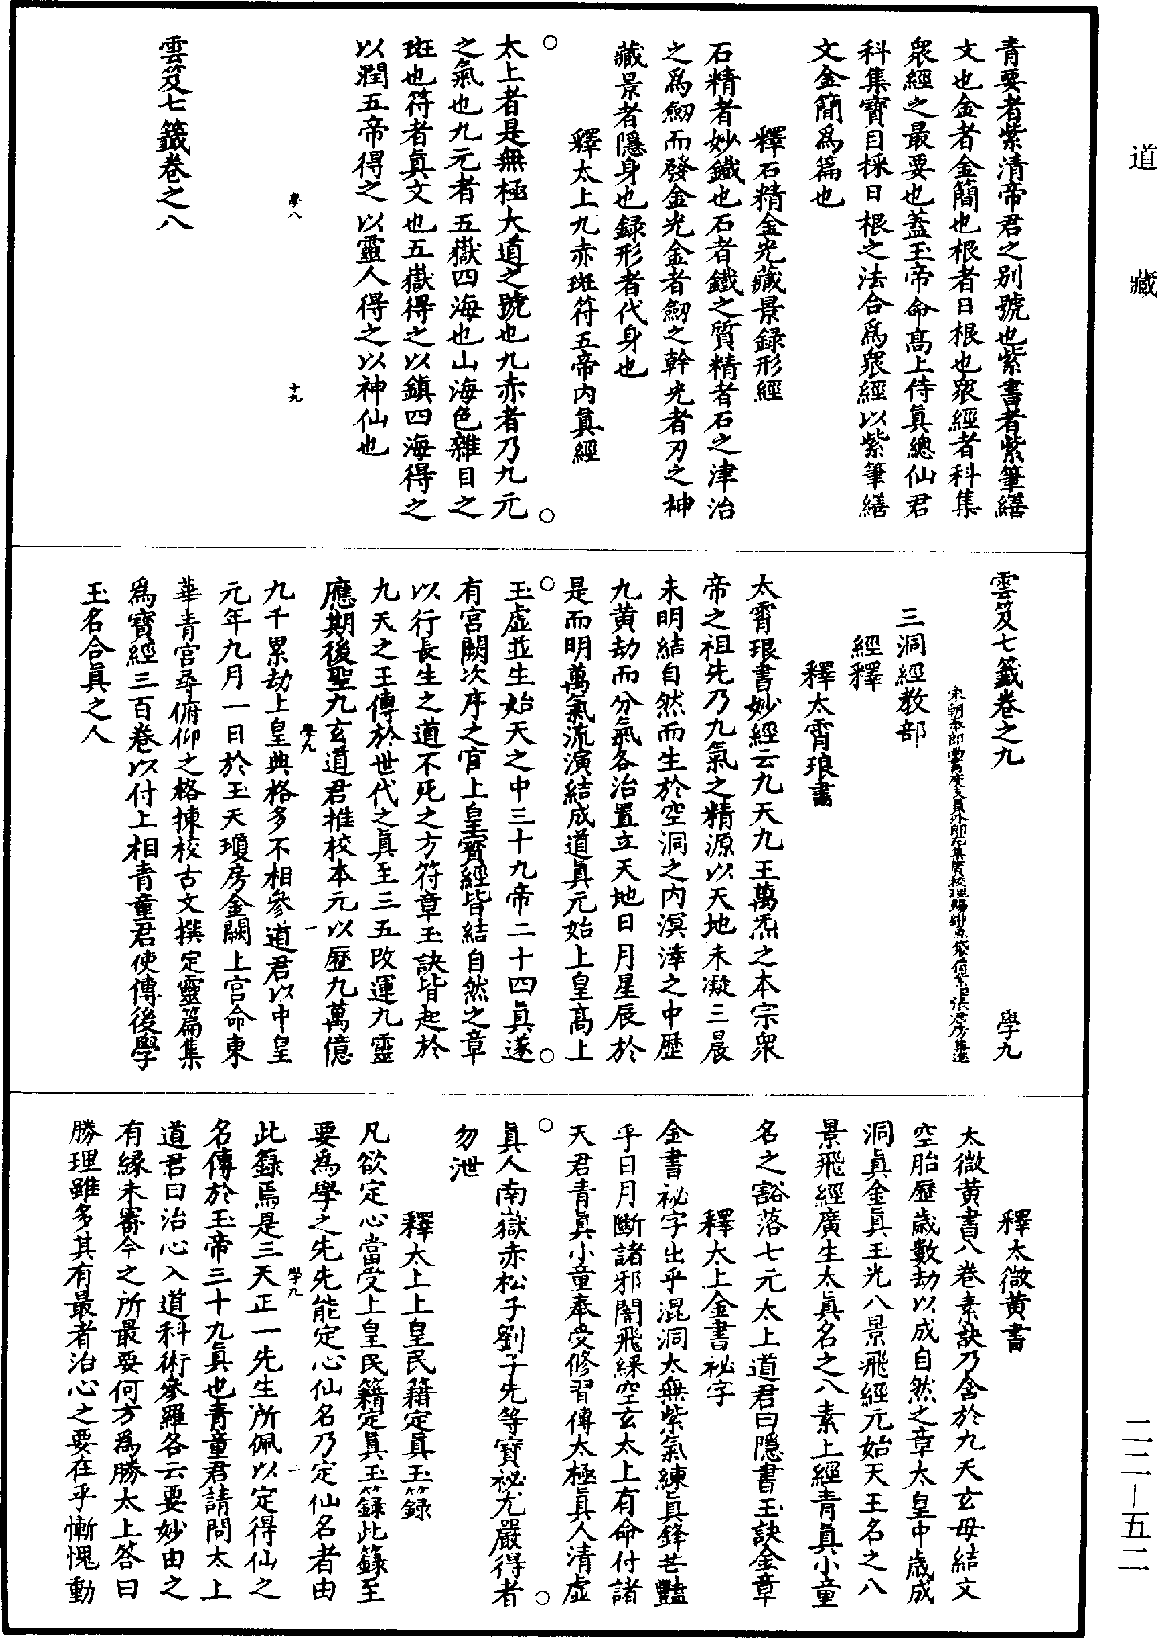 道藏
青要者紫清帝君之別號也紫書者紫筆繕
文也金者金簡也根者日根也衆經者科集
衆經之最要也蓋玉帝命高上侍真總仙君
科集寶目採日根之法合爲衆經以紫筆繕
文金簡爲篇也
釋石精金光藏景録形經
石精者妙鐵也石者鐵之質精者石之津治
之爲劒而發金光金者劒之幹光者刃之神
藏景者隱身也録形者代身也
釋太上九赤斑符五帝内真經
太上者是無極大道之號也九赤者乃九元
之氣也九元者五嶽四海也山海色雜目之
斑也符者真文也五嶽得之以鎮四海得之
以潤五帝得之以靈人得之以神仙也
學八
十九
雲笈七籤卷之八
雲笈七籤卷之九
學九
三洞經教部
經釋
釋太霄琅書
太霄琅書妙經云九天九王萬炁之本宗衆
帝之祖先乃九氣之精源以天地未凝三晨
未明結自然而生於空洞之内溟涬之中歷
九黃劫而分氣各治置立天地日月星辰於
是而明萬氣流演結成道真元始上皇高上
玉虛並生始天之中三十九帝二十四真遂
有宮闕次序之官上皇寶經皆結自然之章
以行長生之道不死之方符章玉訣皆起於
九天之王傳於世代之真至三五改運九靈
應期後聖九玄道君推校本元以歷九萬億
學九
一
九千累劫上皇典格多不相參道君以中皇
元年九月一日於玉天瓊房金闕上宮命東
華青宮尋俯仰之格揀校古文撰定靈篇集
爲寶經三百卷以付上相青童君使傳後學
玉名合真之人
釋太微黃書
太微黃書八卷素訣乃含於九天玄母結文
空胎歷歲數劫以成自然之章太皇中歲成
洞真金真玉光八景飛經元始天王名之八
景飛經廣生太真名之八素上經青真小童
名之豁落七元太上道君曰隱書玉訣金章
釋太上金書祕字
金書祕字出乎混洞太無紫氣練真鋒芒豔
乎日月斷諸邪闇飛緑空玄太上有命付諸
天君青真小童奉受修習傳太極真人清虛
真人南嶽赤松子劉子先等寶祕尤嚴得者
勿泄
釋太上上皇民籍定真玉籙
凡欲定心當受上皇民籍定真玉籙此籙至
要爲學之先先能定心仙名乃定仙名者由
學九
一
此籙焉是三天正一先生所佩以定得仙之
名傳於玉帝三十九真也青童君請問太上
道君曰治心入道科術參羅各云要妙由之
有緣未審今之所最要何方爲勝太上答曰
勝理雖多其有最者治心之要在乎慚愧動
二二—五二